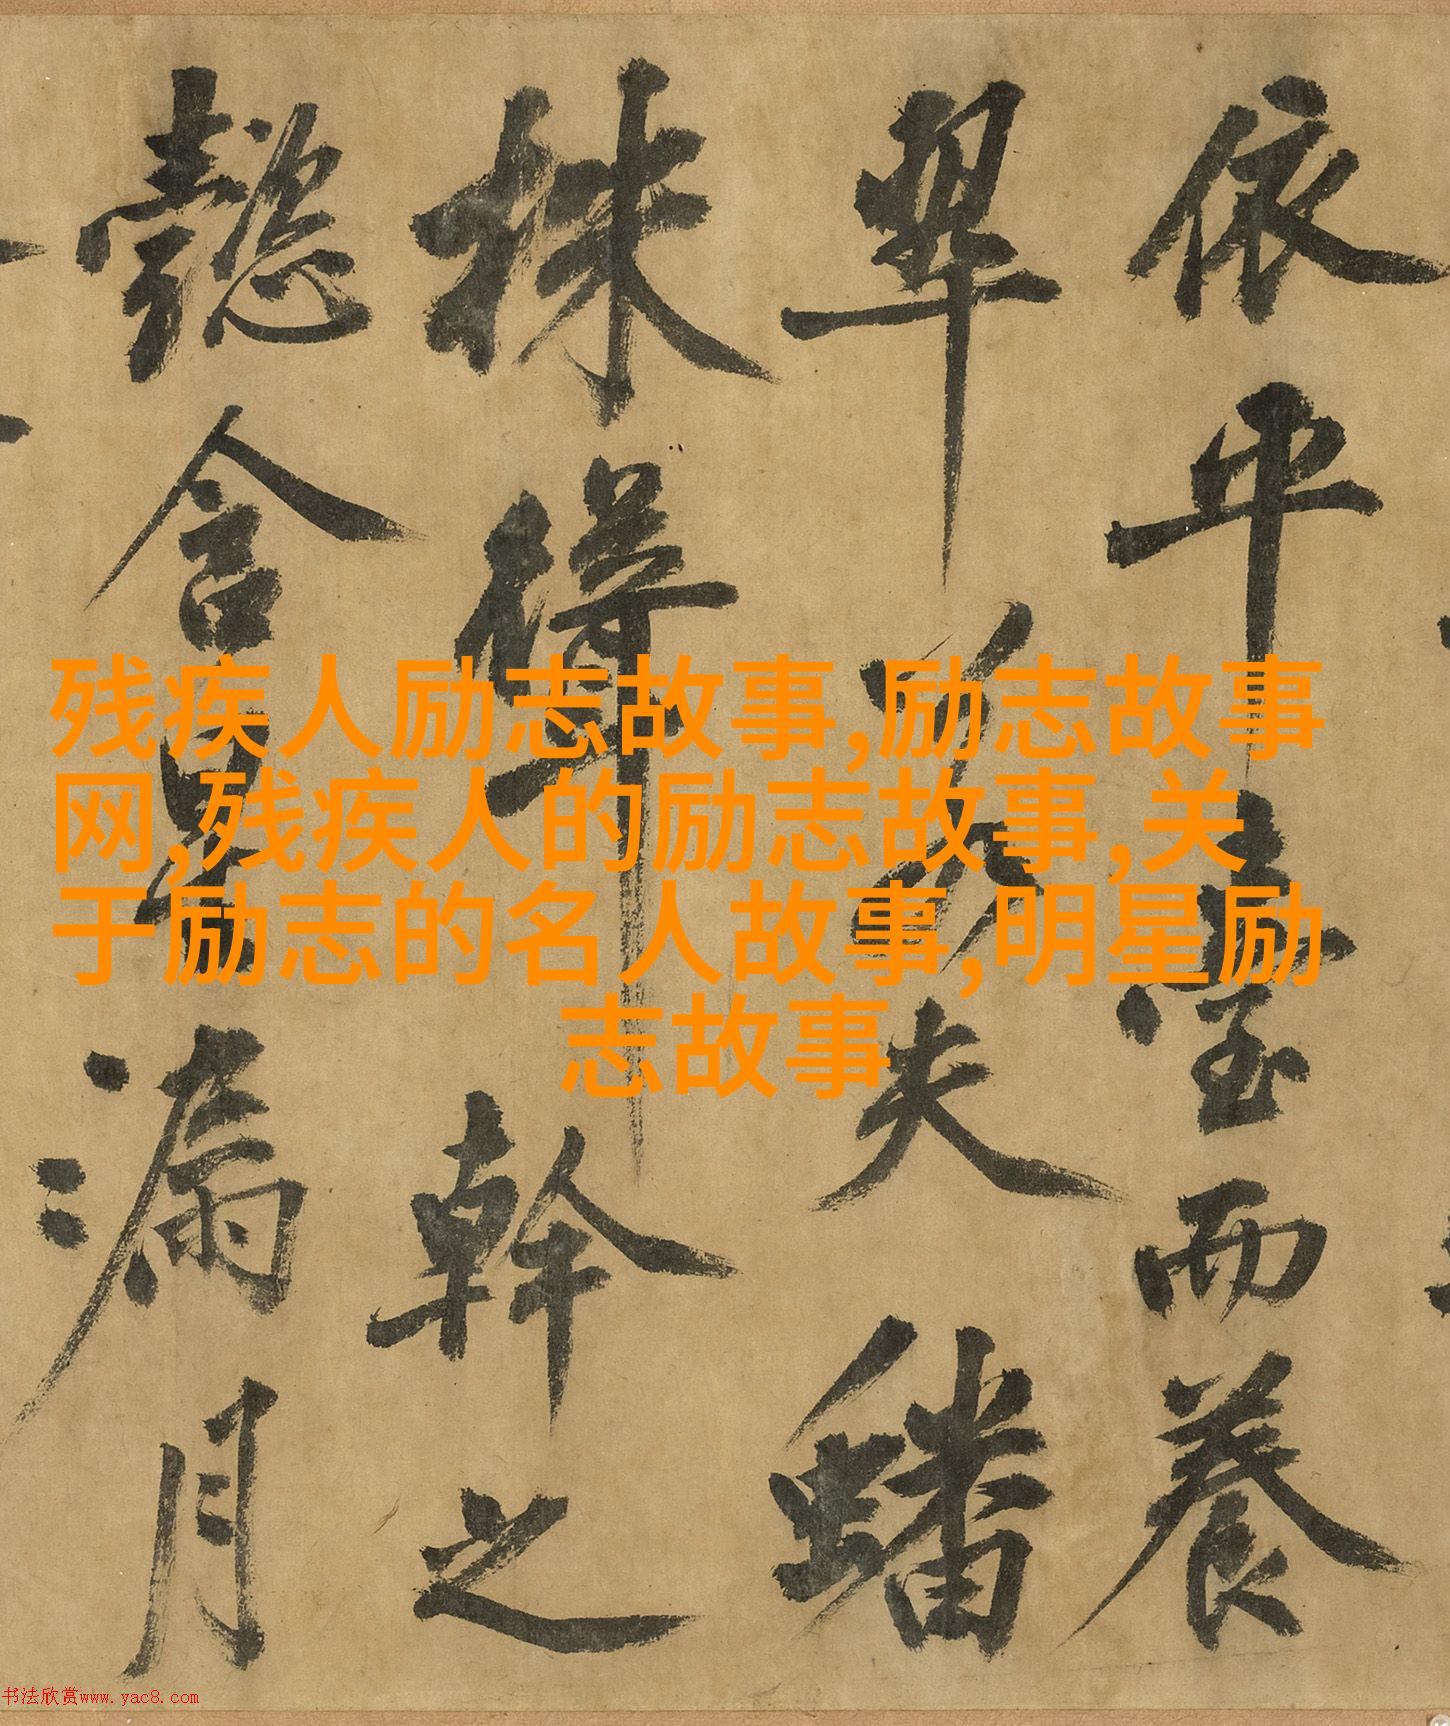 依平臺而養
翠若夫蟠
株聳幹之
懿含星漏月
残疾人励志故事,励志故事
网,残疾人的励志故事,关
于励志的名人故事,明星励
志故事
书法欣赏www.yac8.com